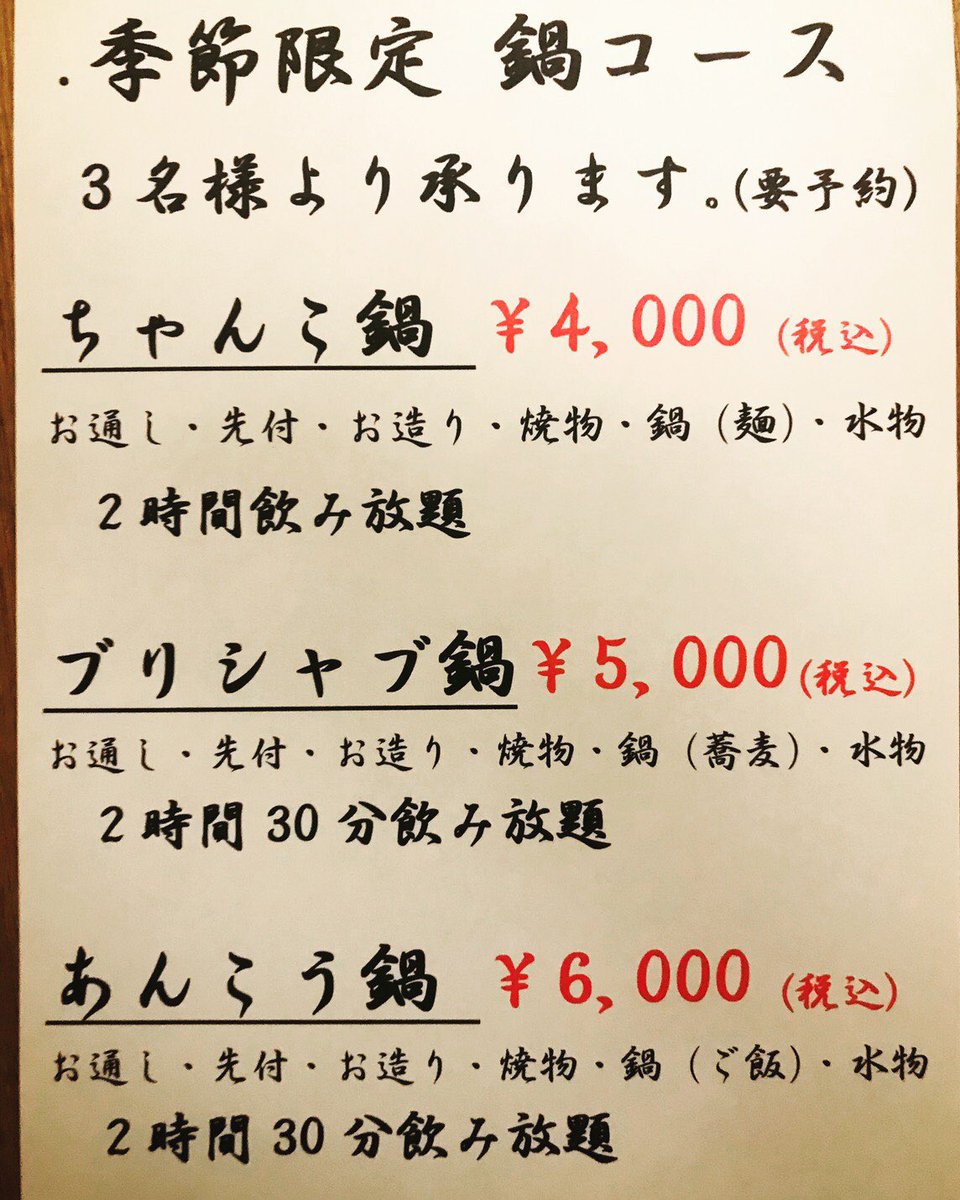 ・季節限定 鍋コース
3名様より承ります。(要予約)
ちゃんこ鍋 ¥4,000 (税込)
お通し・先付・お造り・焼物・鍋(麺)・水物
2時間飲み放題
ブリシャブ鍋 ¥5,000 (税込)
お通し・先付・お造り・焼物・鍋(蕎麦)・水物
2時間30分飲み放題
あんこう鍋 ¥6,000 (税込)
お通し・先付・お造り・焼物・鍋(ご飯)・水物
2時間30分飲み放題